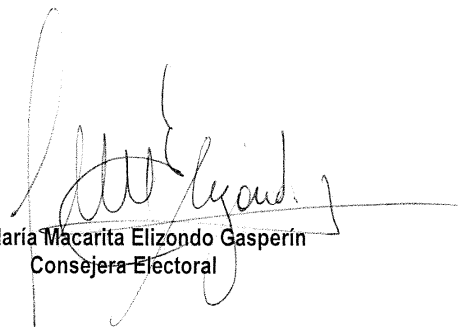 aría Macarita Elizondo Gasperín
Consejera Electoral